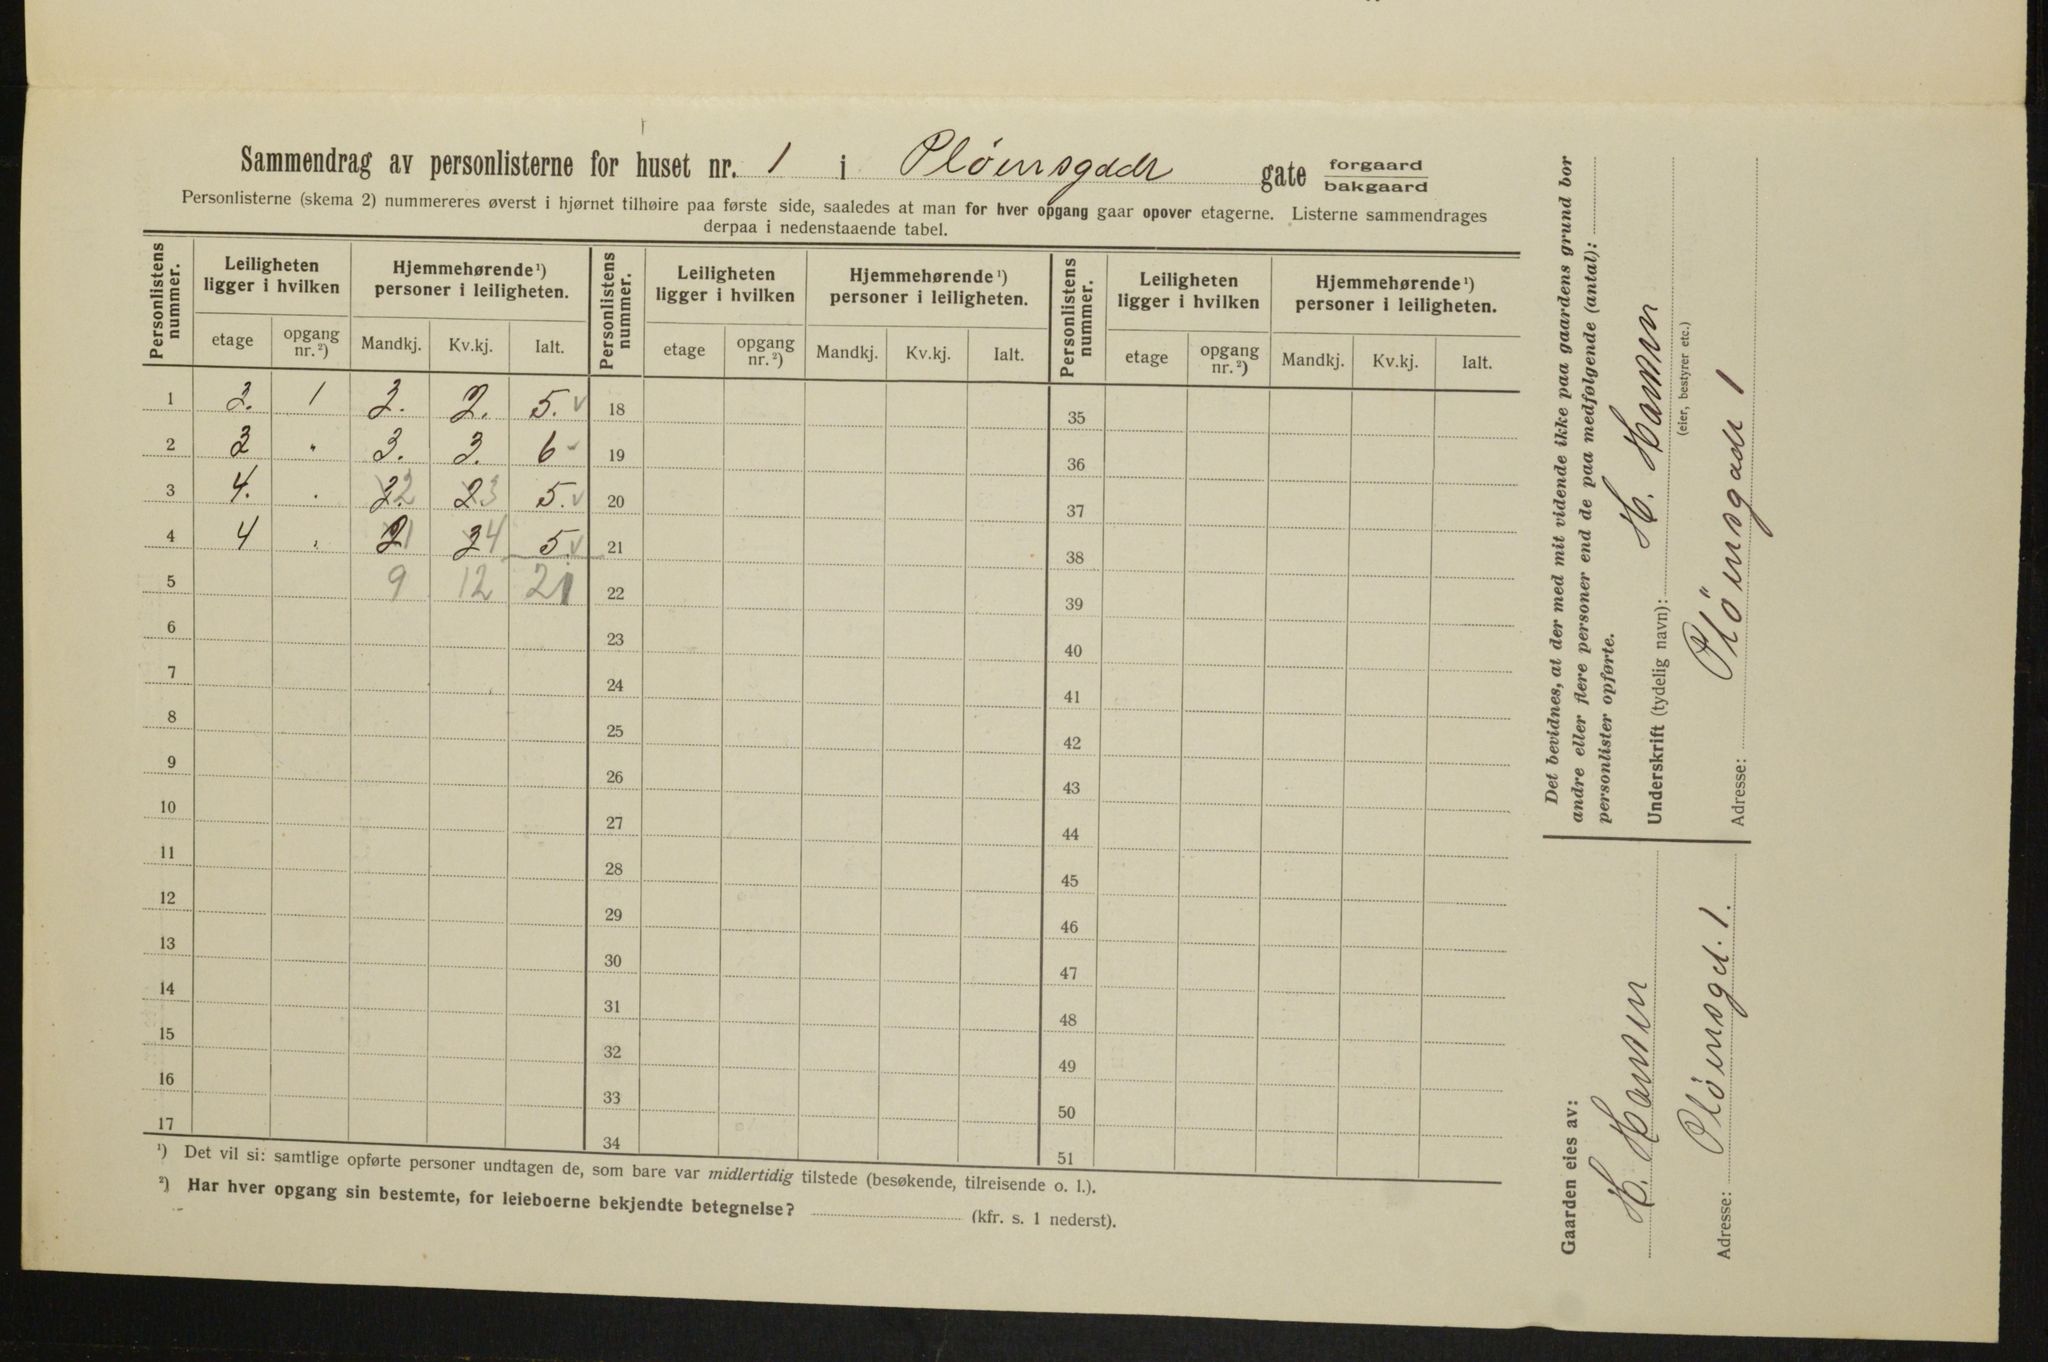 Sammendrag av personlisterne for huset nr. 1 i Pløensgade gate forgaard bakgaard
Personlisterne (skema 2) nummereres øverst i hjørnet tilhøire paa første side, saaledes at man for hver opgang gaar opover etagerne. Listerne sammendrages
derpaa i nedenstaaende tabel.
Personlistens nummer. Leiligheten ligger i hvilken Hjemmehørende ¹) personer i leiligheten. Personlistens nummer. Leiligheten ligger i hvilken Hjemmehørende ¹) personer i leiligheten. Personlistens nummer. Leiligheten ligger i hvilken Hjemmehørende ¹) personer i leiligheten.
etage opgang nr. ²) Mandkj. Kv.kj. Ialt. etage opgang nr. ²) Mandkj. Kv.kj. Ialt. etage opgang nr. ²) Mandkj. Kv.kj. Ialt.
1 3. 1 3. 2. 5. v 18 35
2 3 " 3. 3. 6 19 36
3 4. . 2 23 5. v 20 37
4 4 . 1 4 5. v 21 38
5 9 12 21 22 39
6 23 40
7 24 41
8 25 42
9 26 43
10 27 44
11 28 45
12 29 46
13 30 47
14 31 48
15 32 49
16 33 50
17 34 51
¹) Det vil si: samtlige opførte personer undtagen de, som bare var midlertidig tilstede (besøkende, tilreisende o. l.).
²) Har hver opgang sin bestemte, for leieboerne bekjendte betegnelse? (kfr. s. 1 nederst).
Det bevidnes, at der med mit vidende ikke paa gaardens grund bor
andre eller flere personer end de paa medfølgende (antal):
personlister opførte.
Underskrift (tydelig navn): H. Hansen
(eier, bestyrer etc.)
Adresse: Pløensgade 1
Gaarden eies av:
H. Hansen
Adresse: Pløensgd. 1.